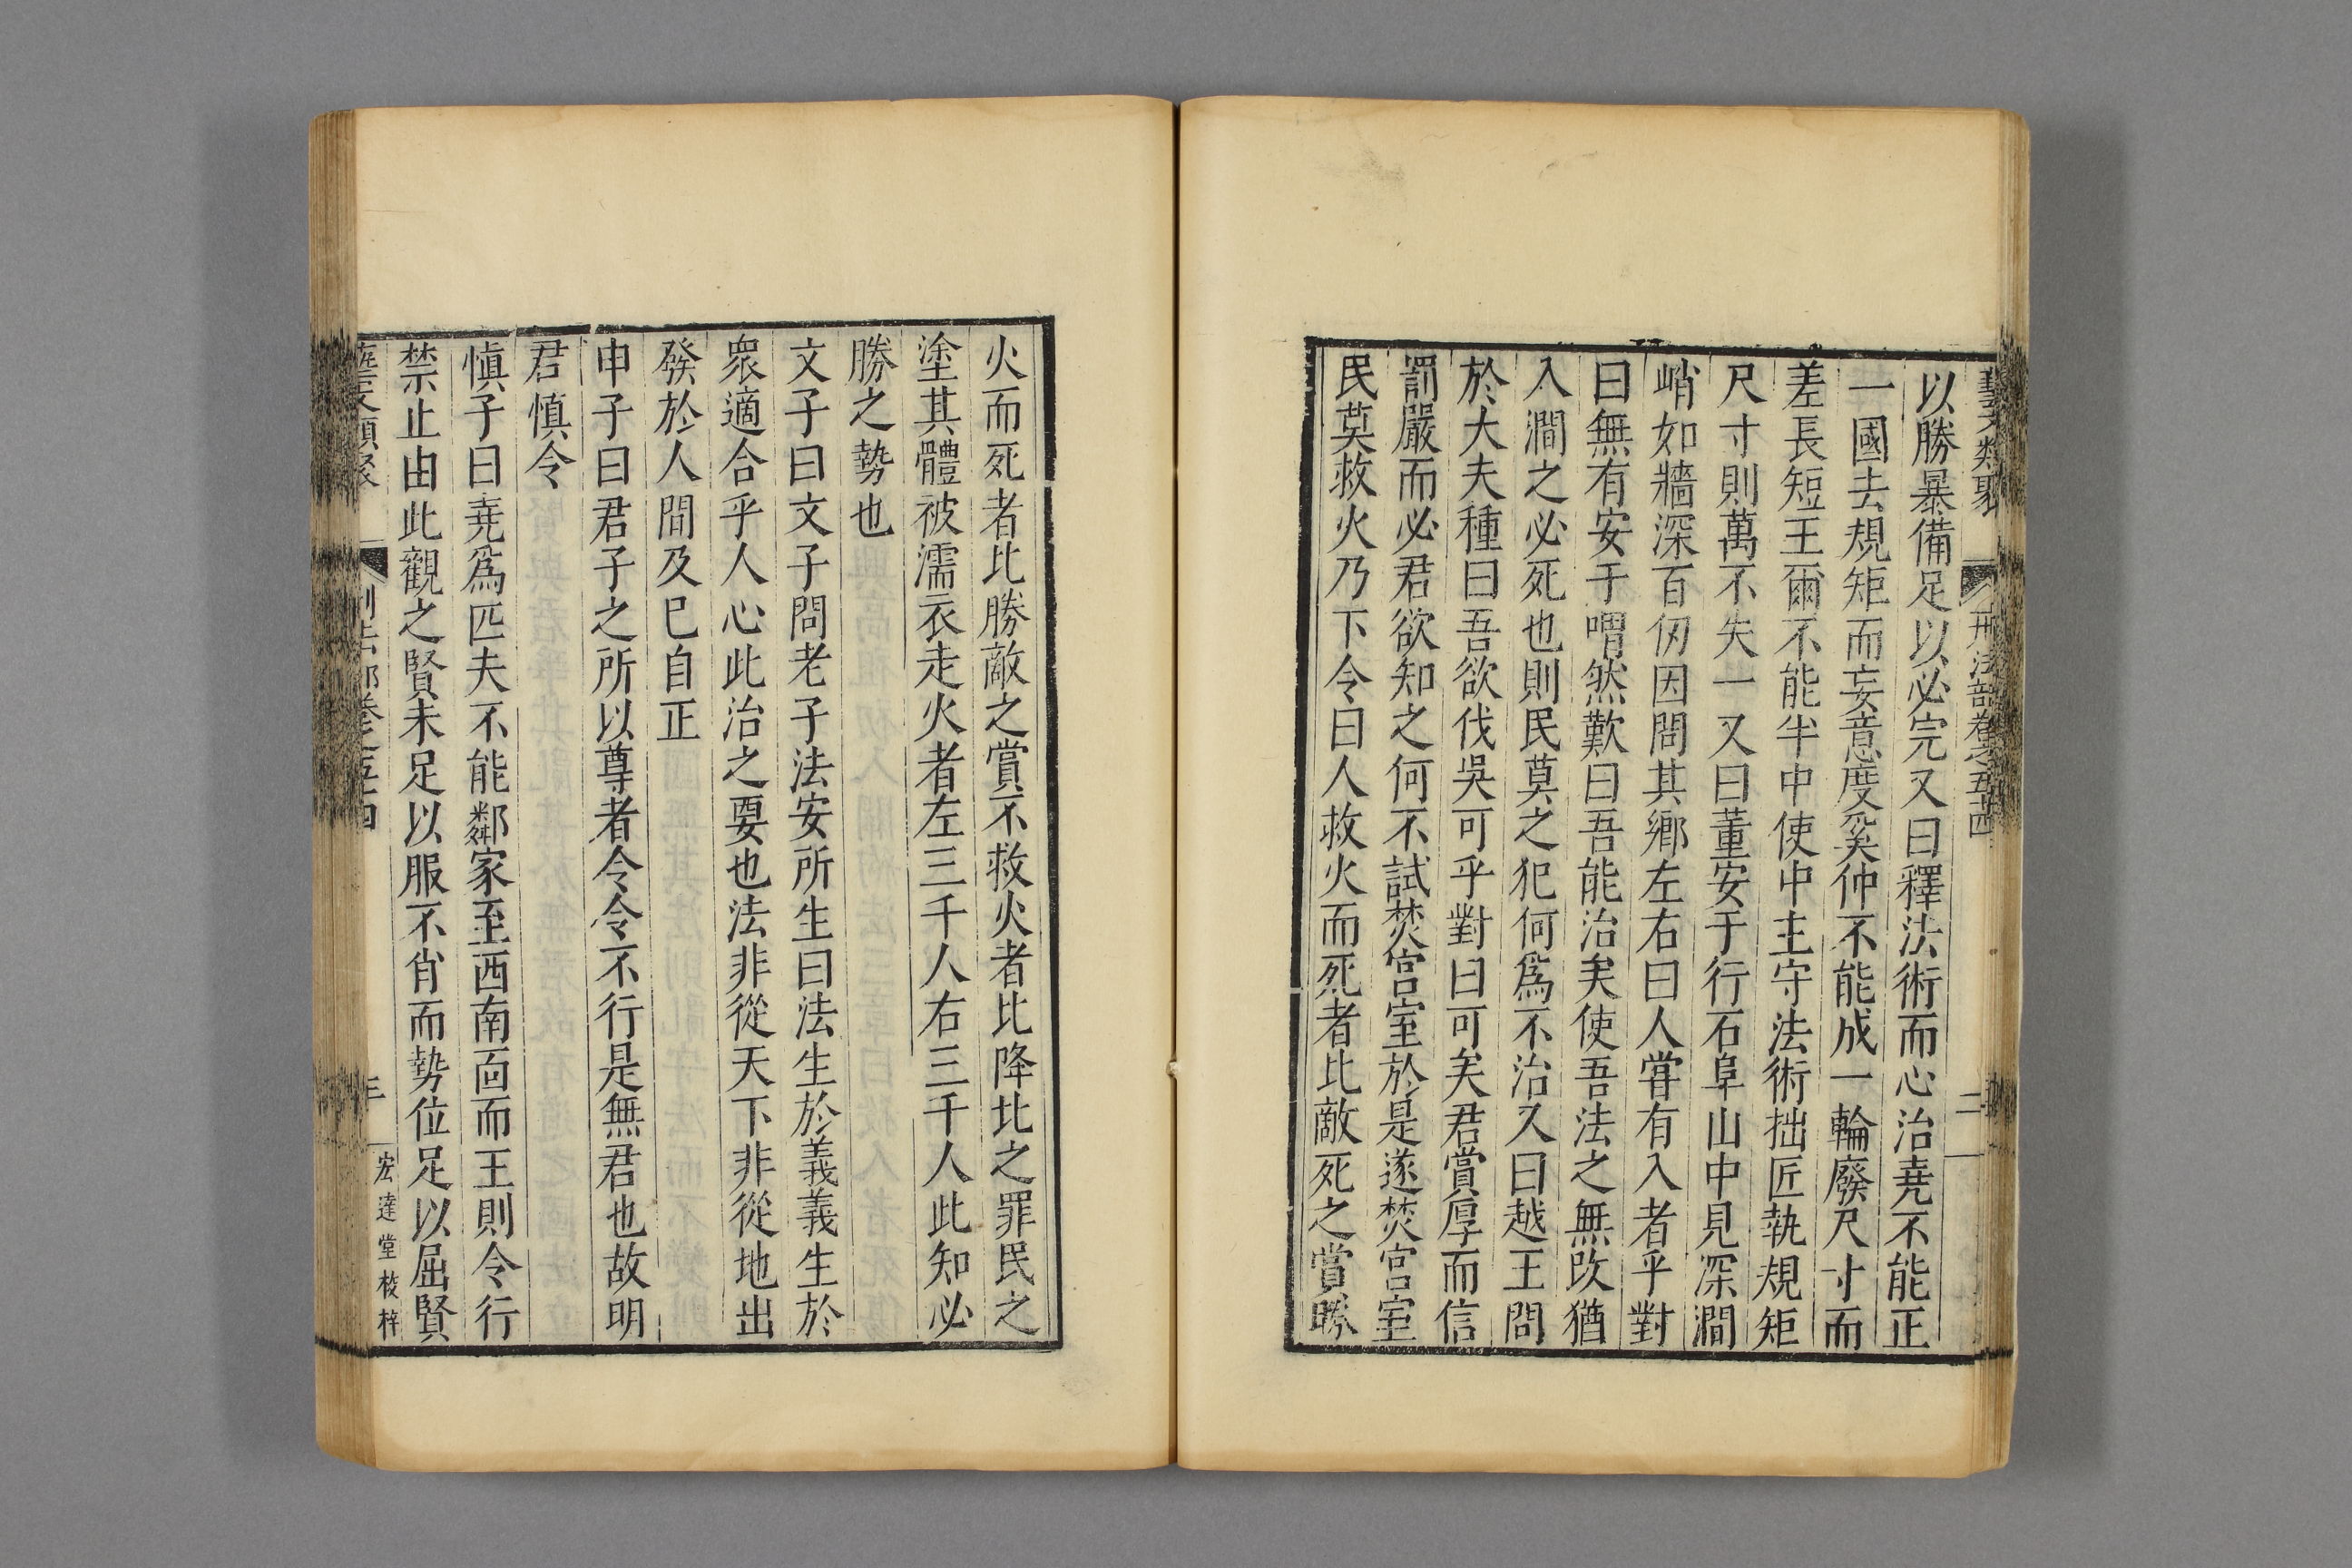 藝文類聚 刑法部卷之五十四 二
以勝暴備足以必完又曰釋法術而心治堯不能正
一國去規矩而妄意度奚仲不能成一輪廢尺寸而
差長短王爾不能半中使中主守法術拙匠執規矩
尺寸則萬不失一又曰董安于行石阜山中見深澗
峭如牆深百仞因問其鄉左右曰人甞有入者乎對
曰無有安于喟然歎曰吾能治矣使吾法之無改猶
入澗之必死也則民莫之犯何爲不治又曰越王問
於大夫種曰吾欲伐吳可乎對曰可矣君賞厚而信
罰嚴而必君欲知之何不試焚宮室於是遂焚宮室
民莫救火乃下令曰人救火而死者比敵死之賞勝
火而死者比勝敵之賞不救火者比降北之罪民之
塗其體被濡衣走火者左三千人右三千人此知必
勝之勢也
文子曰文子問老子法安所生曰法生於義義生於
衆適合乎人心此治之要也法非從天下非從地出
發於人間及已自正
申子曰君子之所以尊者令令不行是無君也故明
君慎令
慎子曰堯爲匹夫不能鄰家至西南面而王則令行
禁止由此觀之賢未足以服不肖而勢位足以屈賢
藝文類聚 刑法部卷之五十四 三 宏達堂校梓